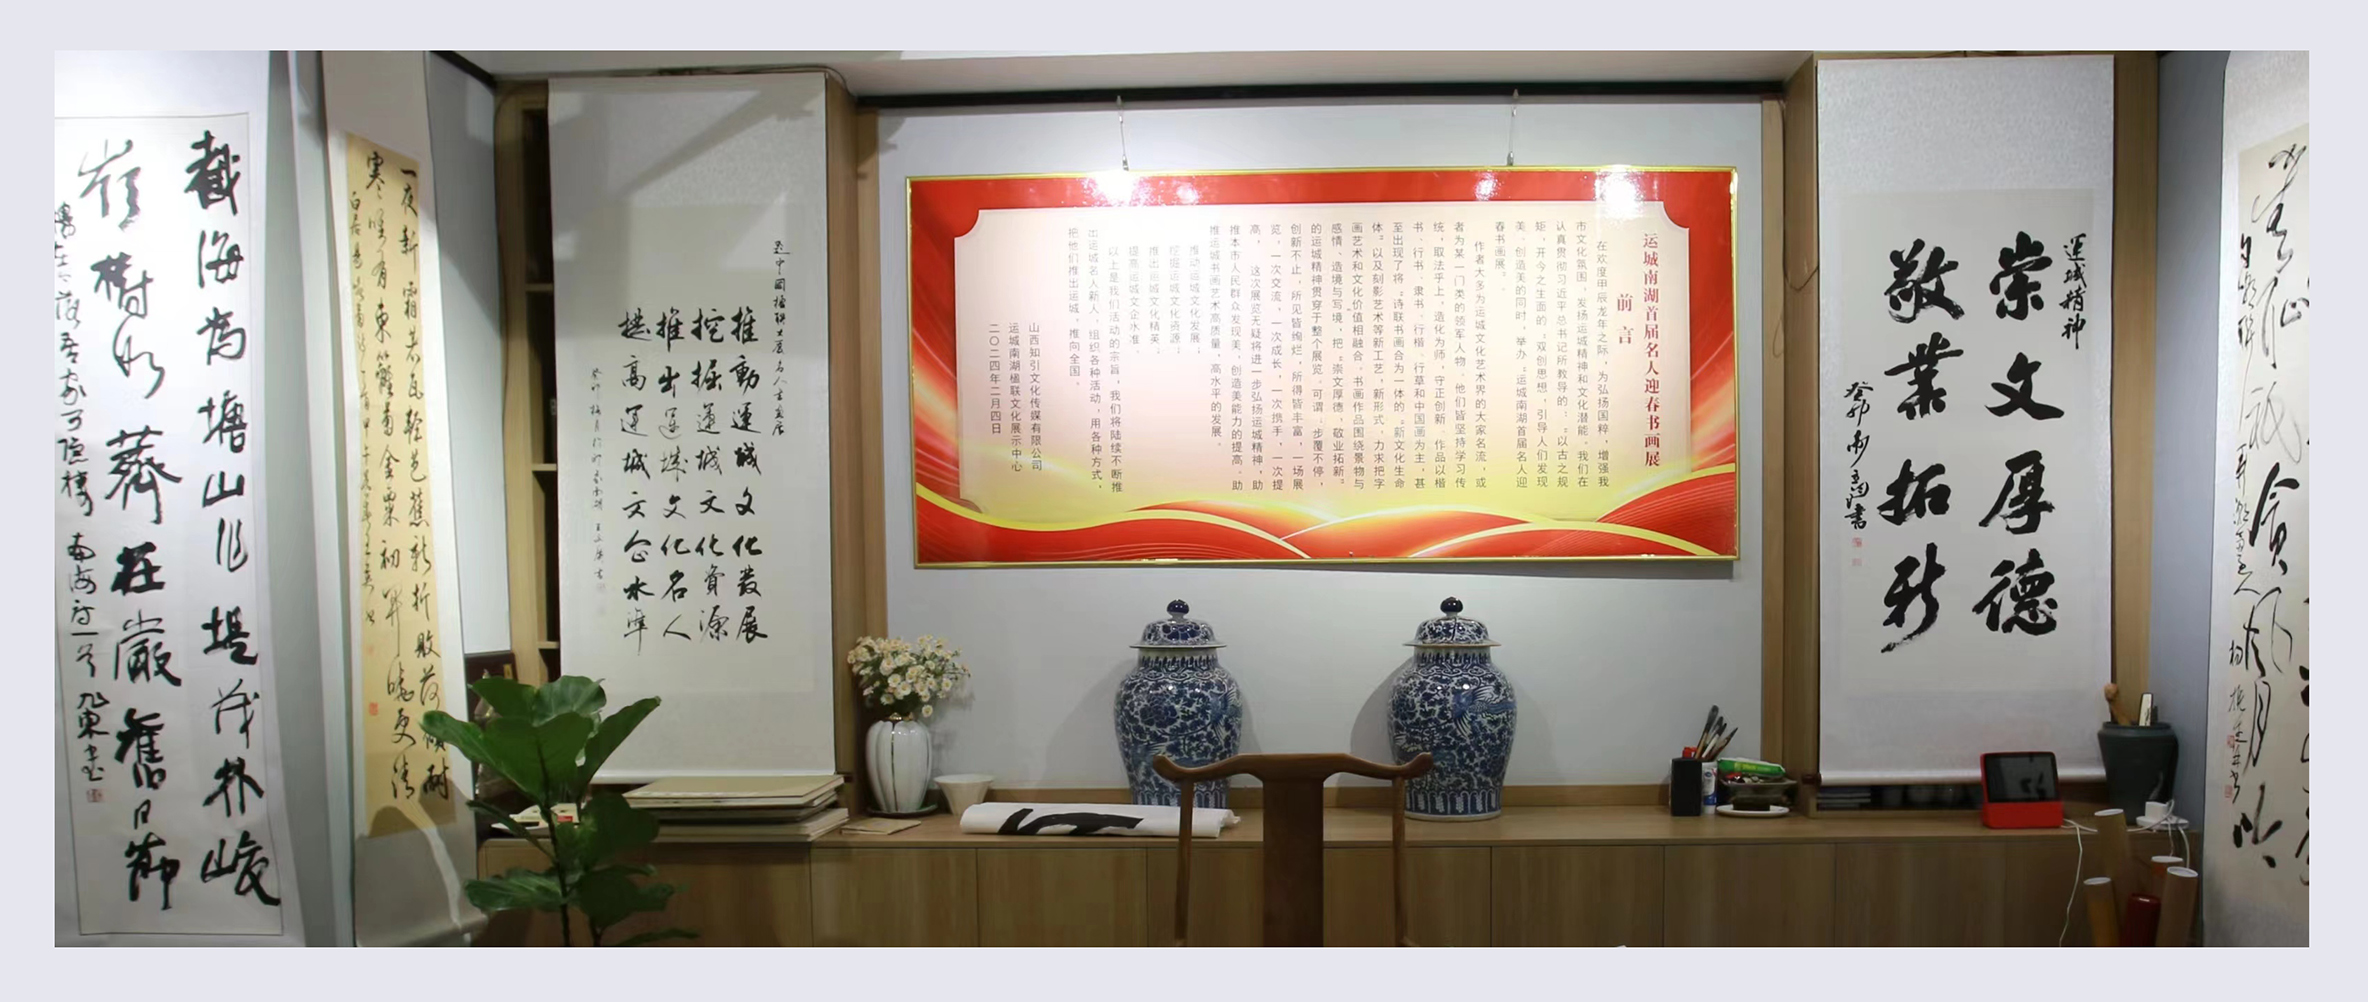 運城精神
崇文厚德
敬業拓新
癸卯
運城南湖首届名人迎春书画展
前言
在欢度甲辰龙年之际，为弘扬国粹，增强我
市文化氛围，发扬运城精神和文化潜能，我们在
认真贯彻习近平总书记所教导的：以古之规
矩，开今之生面的“双创思想，引导人们发现
美、创造美的同时，举办“运城南湖首届名人迎
春书画展。
作者大多为运城文化艺术界的大家名流，或
者为某一门类的领军人物。他们皆坚持学习传
统，取法乎上，造化为师，守正创新。作品以楷
书、行书、隶书、行楷、行草和中国画为主，甚
至出现了将“诗联书画合为一体的“新文化生命
体。以及刻影艺术等新工艺，新形式，力求把字
画艺术和文化价值相融合。书画作品围绕景物与
感情、造境与写境，把“崇文厚德，敬业拓新”
的运城精神贯穿于整个展览。可谓：步履不停，
创新不止，所见皆绚烂，所得皆丰富，一场展
览，一次交流，一次成长，一次携手，一次提
高。这次展览无疑将进一步弘扬运城精神，助
推本市人民群众发现美、创造美能力的提高。助
推运城书画艺术高质量，高水平的发展。
推动运城文化发展，
挖掘运城文化资源，
推出运城文化精英，
提高运城文企水准。
以上是我们活动的宗旨，我们将陆续不断推
出运城名人新人，组织各种活动，用各种方式，
把他们推出运城，推向全国。
山西知引文化传媒有限公司
运城南湖楹联文化展示中心
二〇二四年二月四日
推動運城文化發展
挖掘運城文化資源
推出運城文化名人
提高運城文企水準
一夜新霜着瓦輕芭蕉新折敗荷傾耐
寒唯有東籬菊金粟初開曉更清
截海為塘山作堤茂林峻
嶺樹如薺莊嚴舊日節